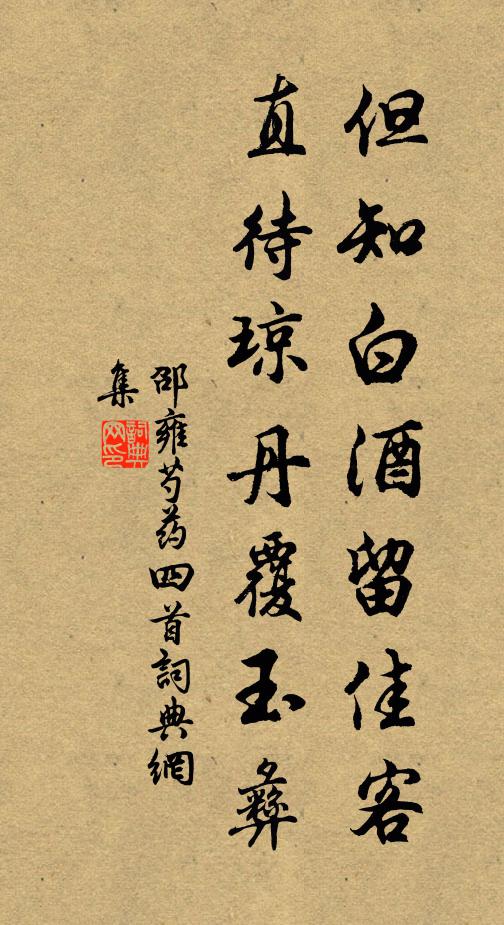 但知白酒留佳客
直待琼丹覆玉彝
邵雍芍药四首詞典網
集
詞典网印